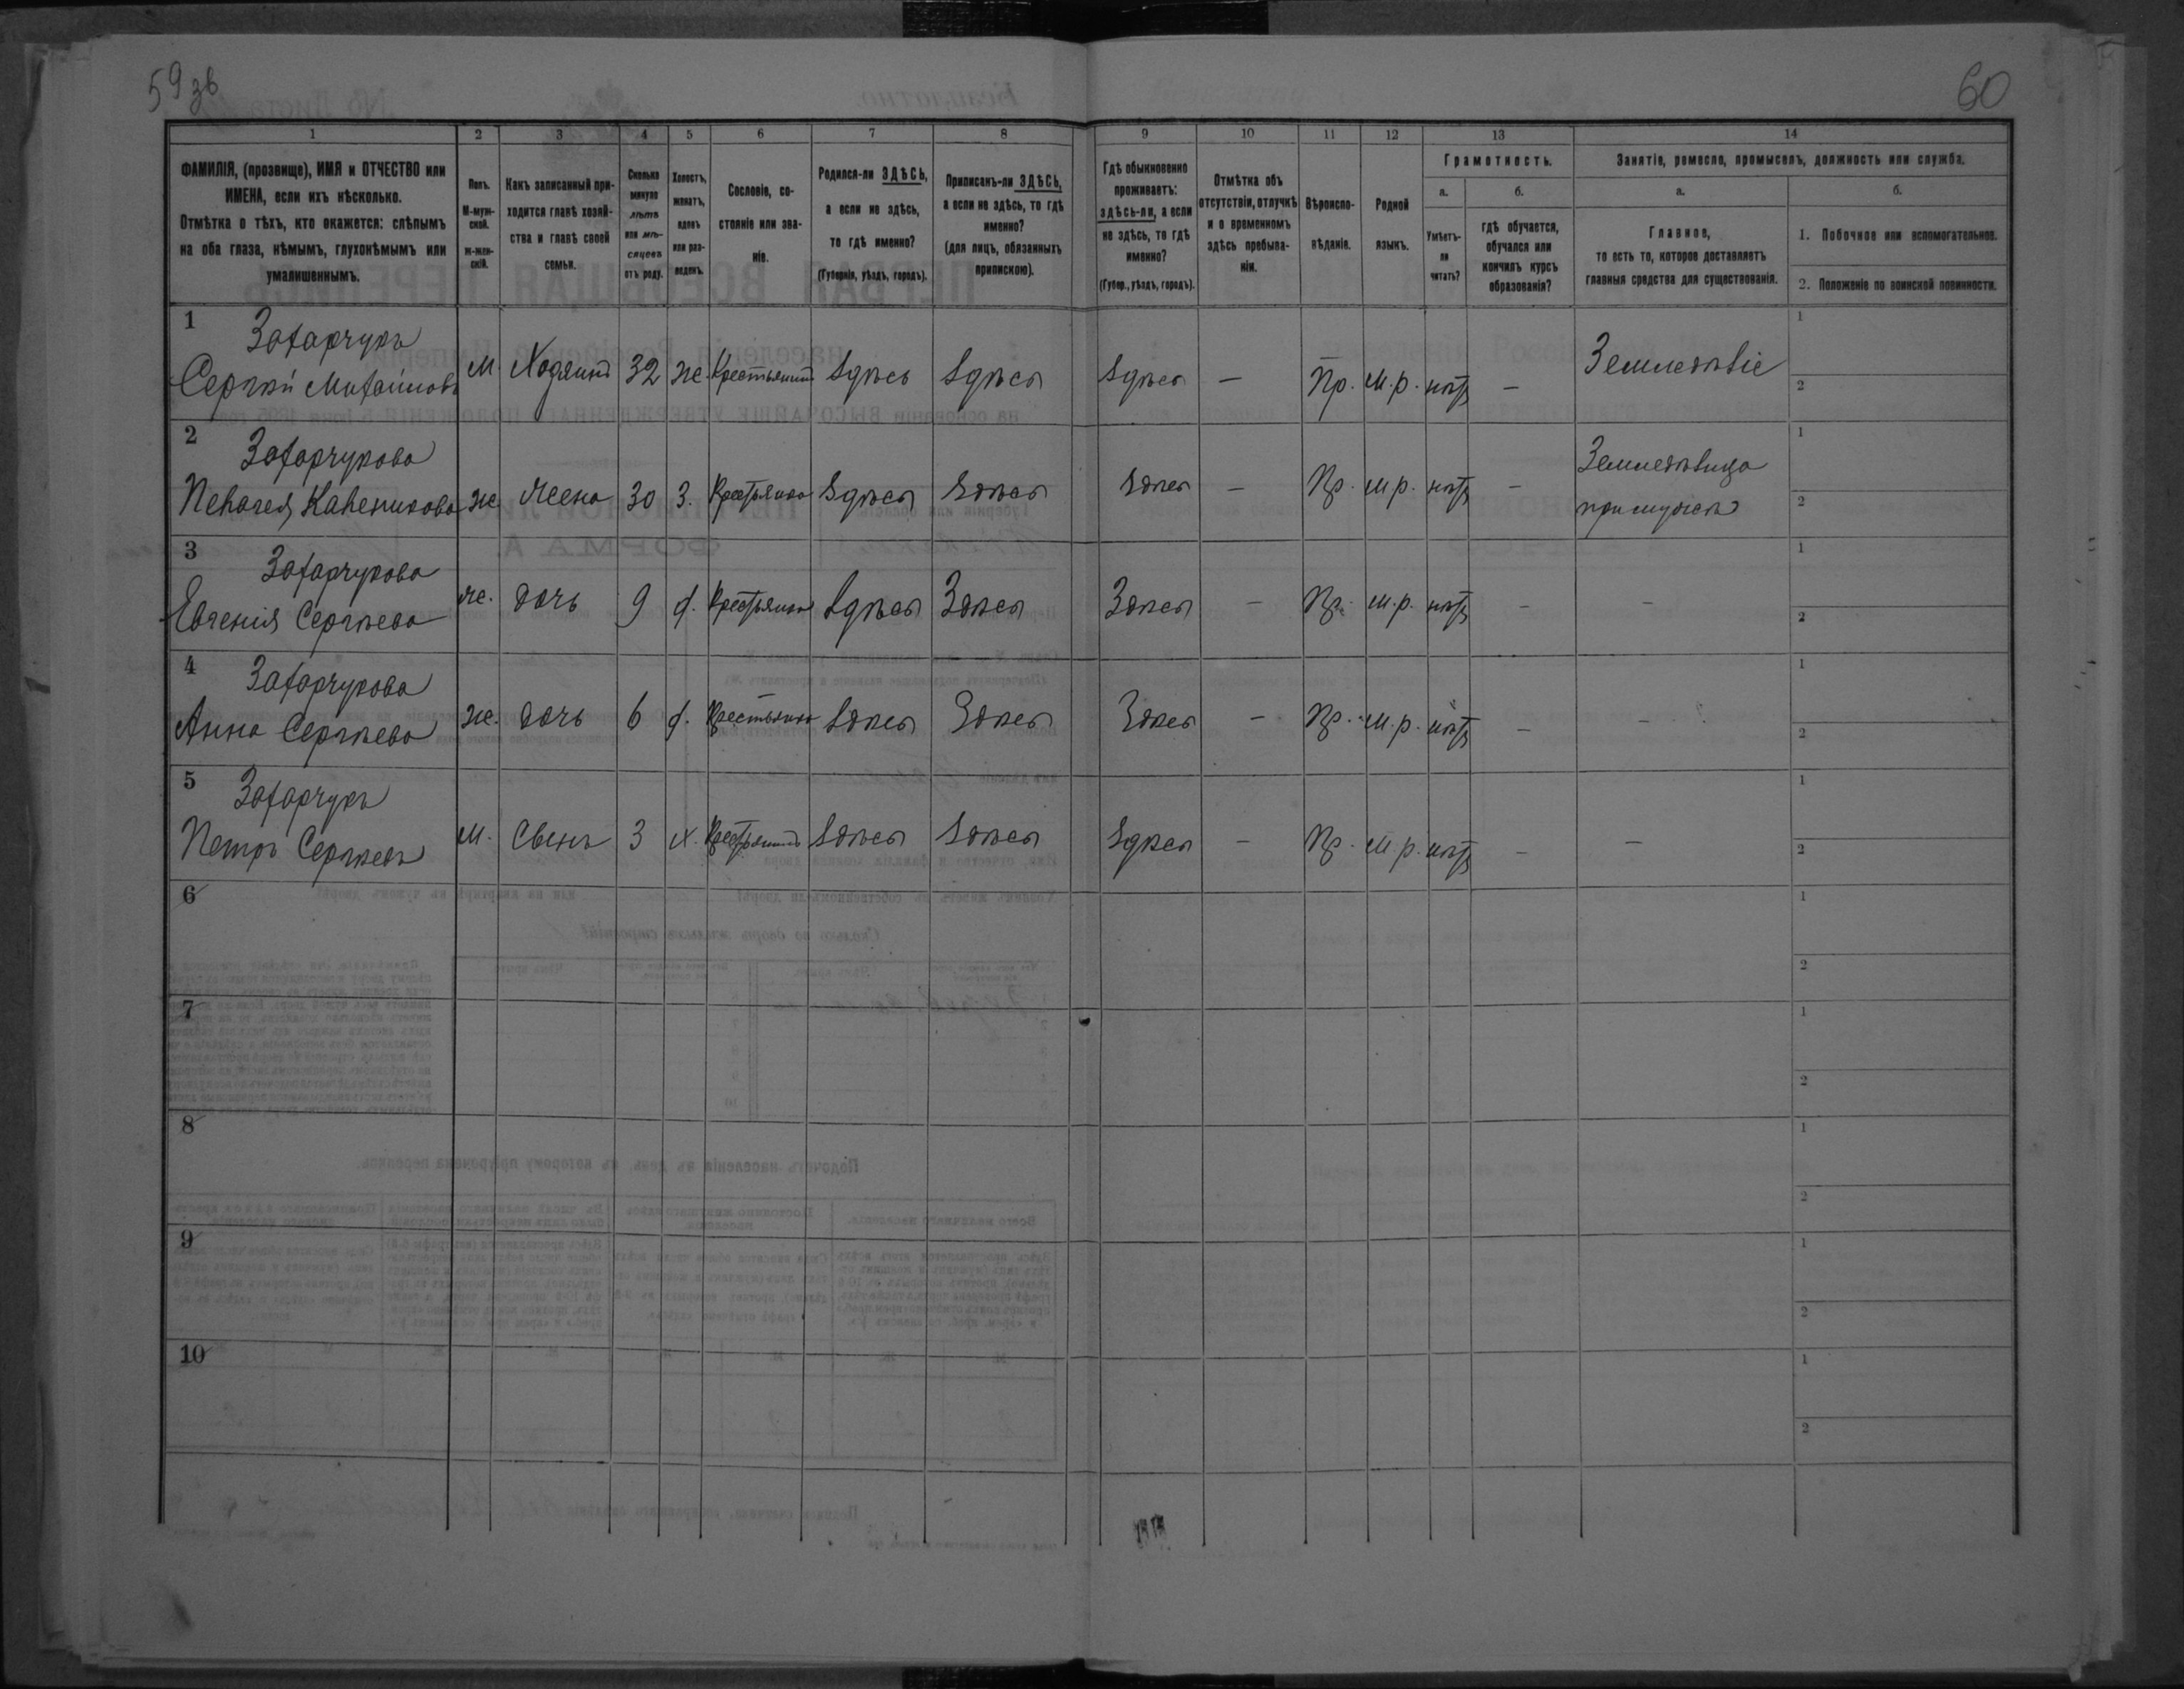 59 зв
60
1 2 3 4 5 6 7 8 9 10 11 12 13 14
ФАМИЛІЯ, (прозвище), ИМЯ и ОТЧЕСТВО или
ИМЕНА, если ихъ нѣсколько.
Отмѣтка о тѣхъ, кто окажется: слѣпымъ
на оба глаза, нѣмымъ, глухонѣмымъ или
умалишеннымъ.
Полъ.
М-муж-
ской.
ж-жен-
скій.
Какъ записанный при-
ходится главѣ хозяй-
ства и главѣ своей
семьи.
Сколько
минуло
лѣтъ
или мѣ-
сяцевъ
отъ роду.
Холостъ,
женатъ,
вдовъ
или раз-
веденъ.
Сословіе, со-
стояніе или зва-
ніе.
Родился-ли ЗДѢСЬ,
а если не здѣсь,
то гдѣ именно?
(Губернія, уѣздъ, городъ).
Приписанъ-ли ЗДѢСЬ,
а если не здѣсь, то гдѣ
именно?
(для лицъ, обязанныхъ
припискою).
Гдѣ обыкновенно
проживаетъ:
здѣсь-ли, а если
не здѣсь, то гдѣ
именно?
(Губер., уѣздъ, городъ).
Отмѣтка объ
отсутствіи, отлучкѣ
и о временномъ
здѣсь пребыва-
ніи.
Вѣроиспо-
вѣданіе.
Родной
языкъ.
Грамотность.
а.
Умѣетъ-
ли
читать?
б.
гдѣ обучается,
обучался или
кончилъ курсъ
образованія?
Занятіе, ремесло, промыселъ, должность или служба.
а.
Главное,
то есть то, которое доставляетъ
главныя средства для существованія.
б.
1. Побочное или вспомогательное.
2. Положеніе по воинской повинности.
1 Захарчукъ
Сергѣй Михайловъ М. Хозяинъ 32 же. Крестьянинъ Здѣсь Здѣсь Здѣсь — Пр. м.р. нѣтъ — Земледѣліе 1 2
2 Захарчукова
Пелагея Каленикова же жена 30 З. Крестьянка Здѣсь Здѣсь Здѣсь — Пр. м.р. нѣтъ — Земледѣлица
при мужѣ 1 2
3 Захарчукова
Евгенія Сергѣева же. дочь 9 д. Крестьянка Здѣсь Здѣсь Здѣсь — Пр. м.р. нѣтъ — — 1 2
4 Захарчукова
Анна Сергѣева же. дочь 6 д. Крестьянка Здѣсь Здѣсь Здѣсь — Пр. м.р. нѣтъ — — 1 2
5 Захарчукъ
Петръ Сергѣевъ М. Свинъ 3 х. Крестьянинъ Здѣсь Здѣсь Здѣсь — Пр. м.р. нѣтъ — — 1 2
6 1 2
7 1 2
8 1 2
9 1 2
10 1 2